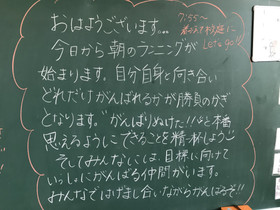 おはようございます。
7:55〜
Let's go!!
今日から朝のランニングが
始まります。自分自身と向き合い
どれだけがんばれるかが勝負のかぎ
となります。"がんばりぬけた!!"と本番
思えるようにできることを精一杯しよう
そしてみんなには、目標に向けて
いっしょにがんばる仲間がいます。
みんなではげまし合いながらがんばるぞ!!